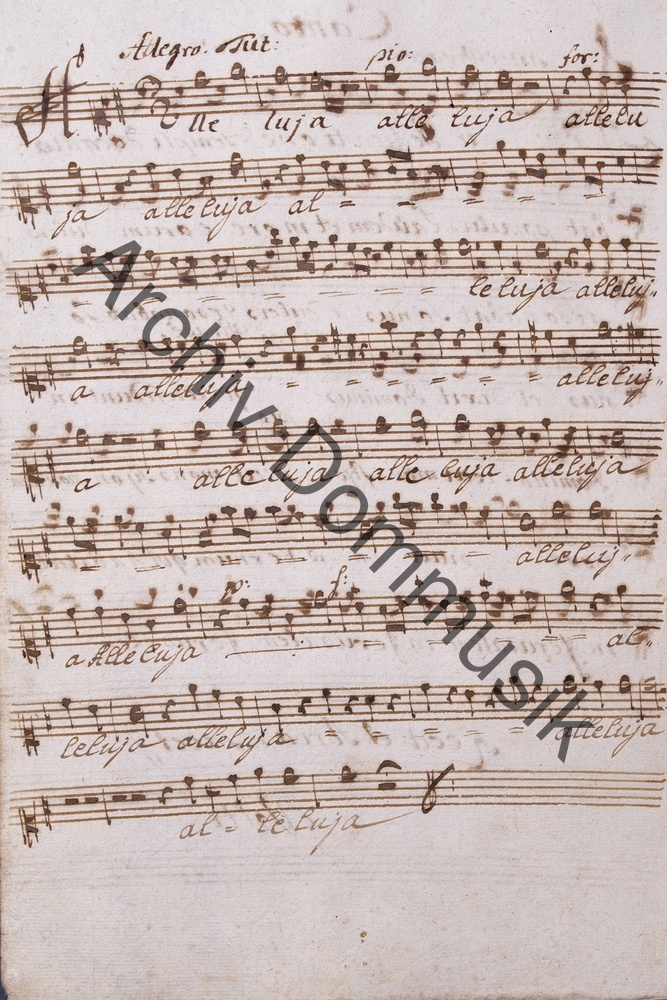 Allegro. Tut: pio: for:
Alle - luja alle luja allelu
ja alleluja al = = = = = = =
= = = = = = = = leluja alleluj„
a alleluja = = = = = alleluj„
a alleluja alle luja alleluja
= = = = = = = alleluj„
p: f:
a Alleluja = = al„
leluja alleluja = = = = = alleluja
al = leluja
Archiv Dommusik